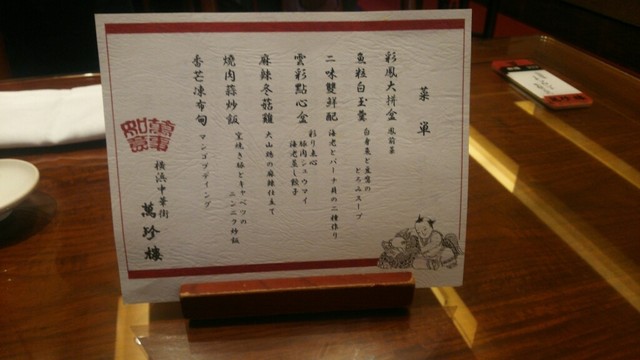 菜単
彩鳳大拼盒 鳳前菜
魚粒白玉羹 白身魚と豆腐のとろみスープ
二味雙鮮配 海老とバーナ貝の二種作り
雲彩點心盒 彩り点心
豚肉シュウマイ
海老蒸し餃子
麻辣冬菇雞 大山鶏の麻辣仕立て
燒肉蒜炒飯 窯焼き豚とキャベツの
ニンニク炒飯
香芒凍布甸 マンゴプディング
萬事如意
横浜中華街
萬珍樓